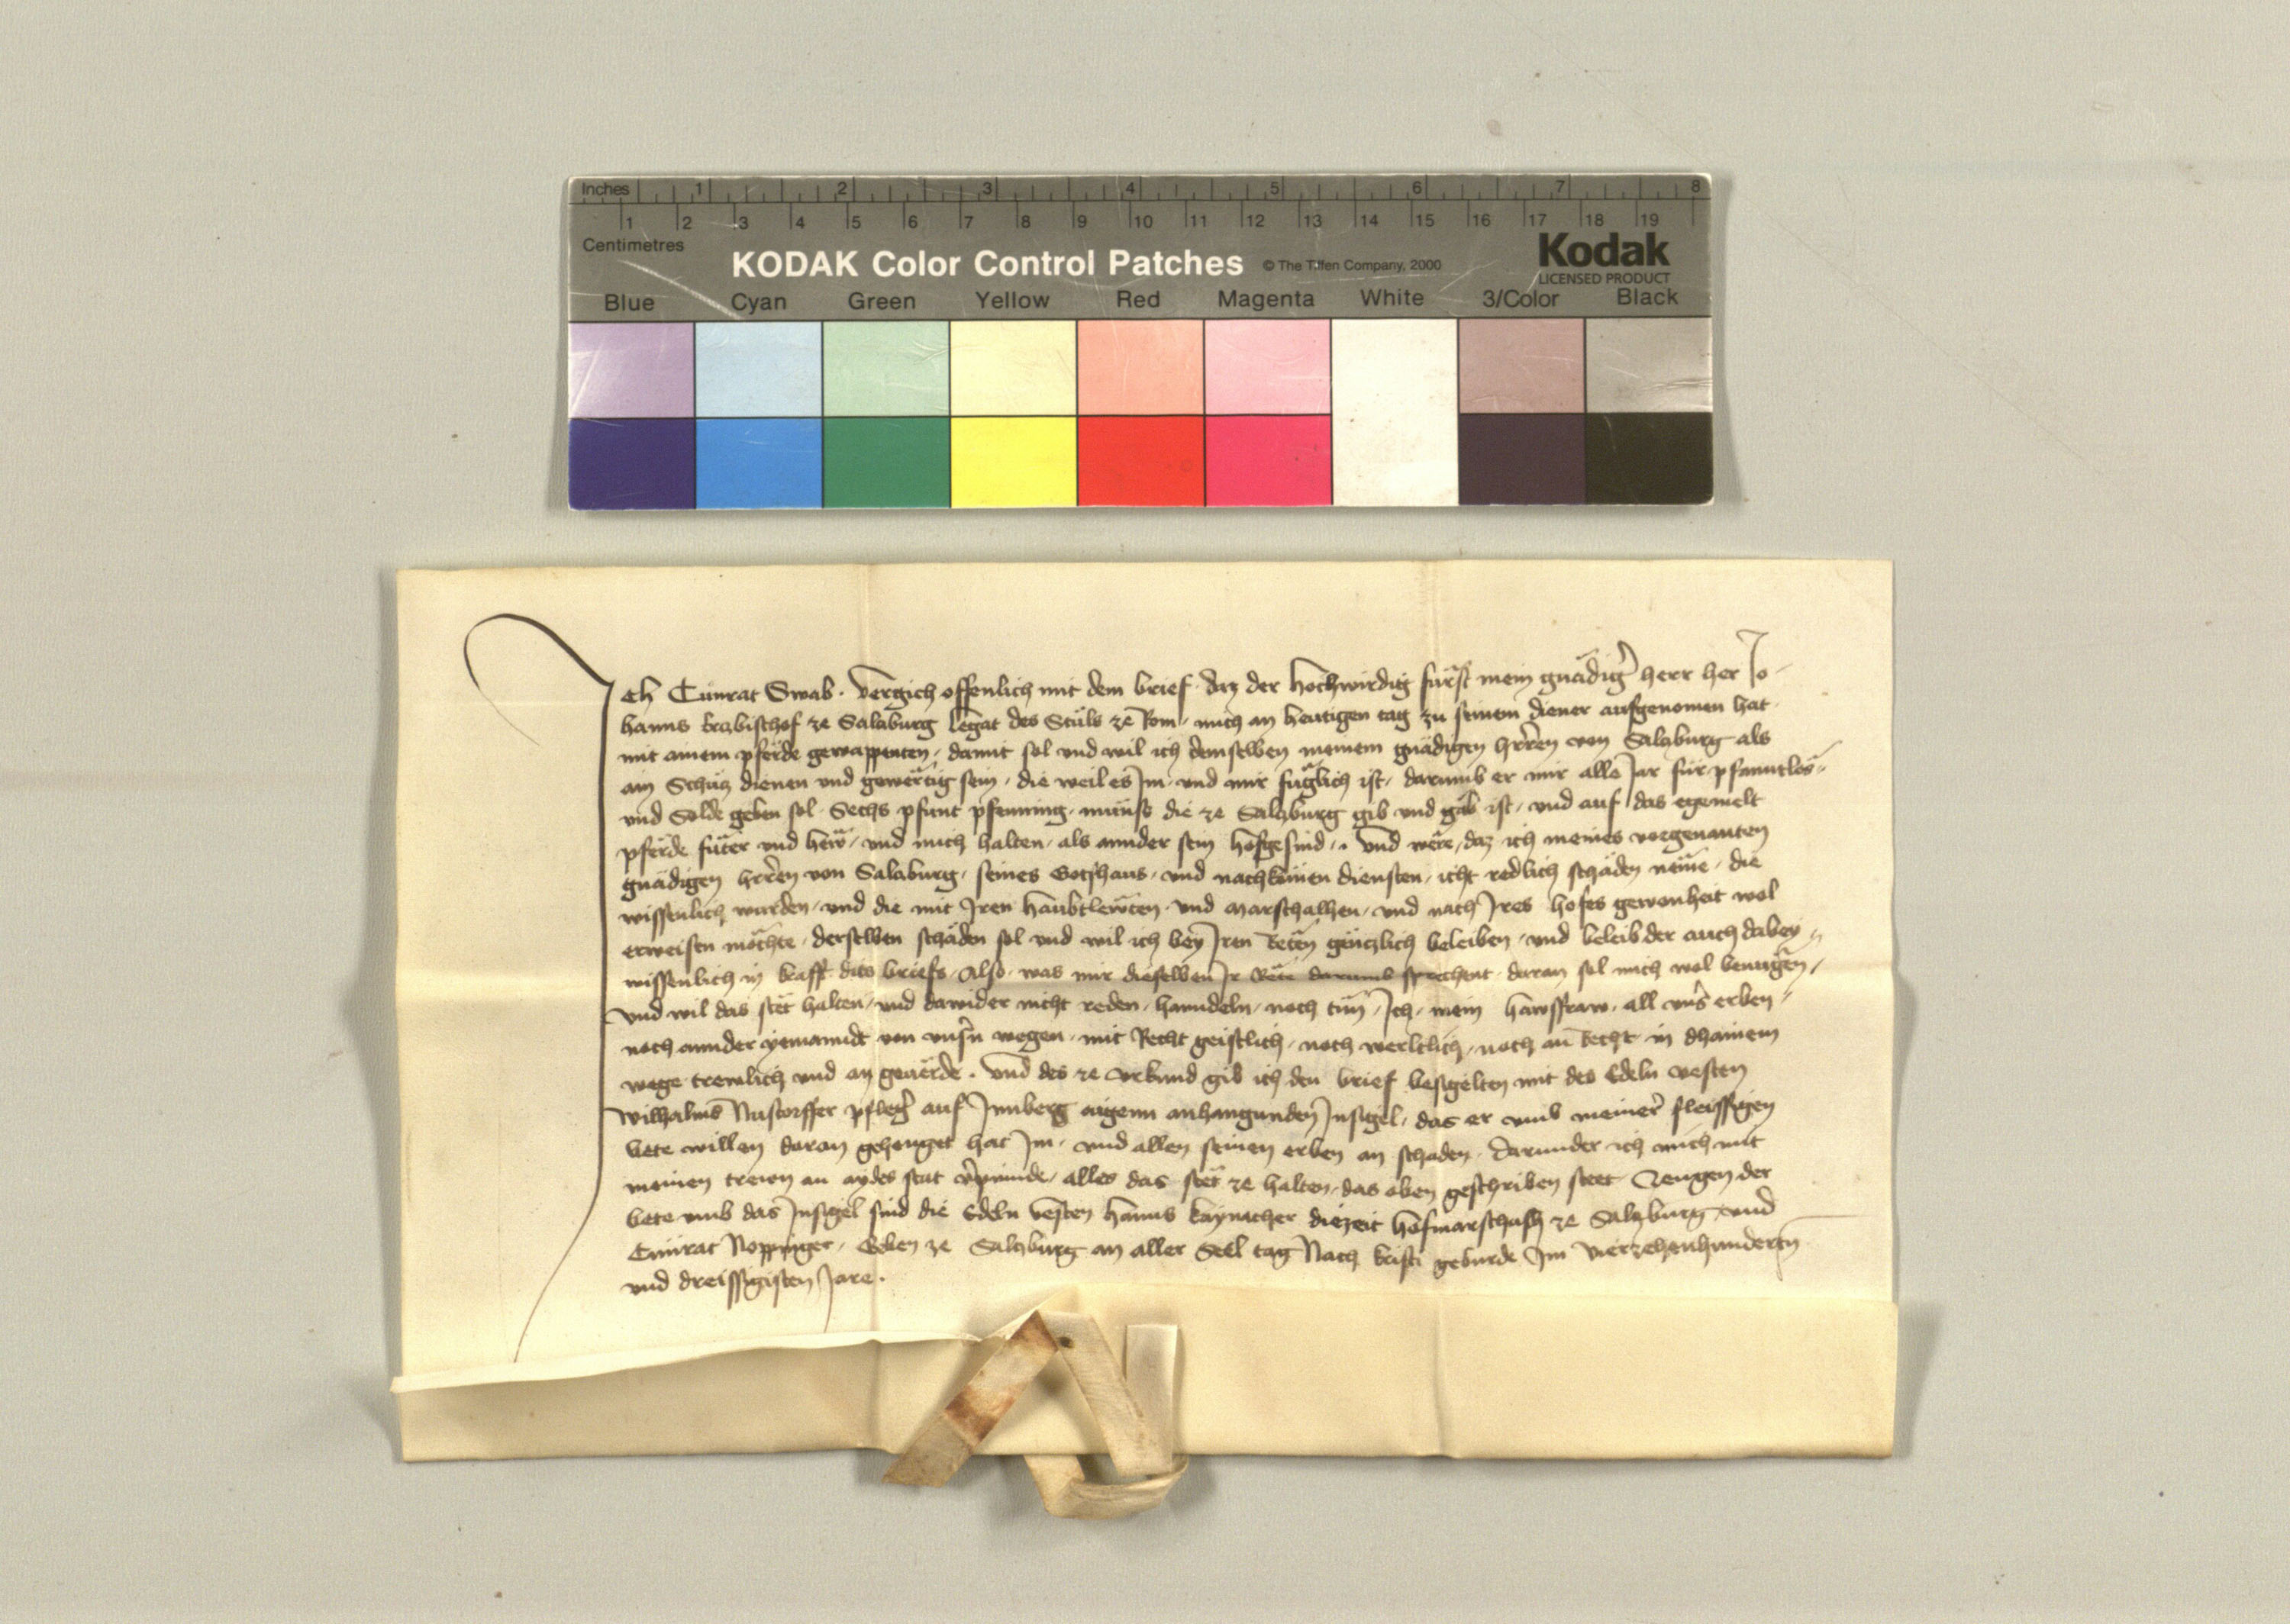 Inches 1 2 3 4 5 6 7 8
1 2 3 4 5 6 7 8 9 10 11 12 13 14 15 16 17 18 19
Centimetres
KODAK Color Control Patches © The Tiffen Company, 2000 Kodak
LICENSED PRODUCT
Blue Cyan Green Yellow Red Magenta White 3/Color Black
Ich Cunrat Swab · vergich offenlich mit dem brief · daz der hochwirdig fürst mein gnädiger herr her Jo-
hanns Erzbischof ze Salzburg Legat des Stüls ze Rom, mich an heutigen tag zu seinem diener aufgenomen hat ·
mit ainem pferde gewappenten, damit sol und wil ich demselben meinem gnädigen herren von Salzburg als
ain Schüz dienen und gewertig sein, die weil es Im, und mir füglich ist, darumb er mir alle Jar für pfanntlos
und Solde geben sol · Sechs pfunt pfenning, münss die ze Salzburg gib und gäb ist, und auf das egemelt
pferde füter und hew, und mich halten, als annder sein hofgesind, · Und were, daz ich meines vorgenanten
gnädigen herren von Salzburg, seines Gotzhaus, und nachkomen diensten, icht redlich schäden neme, die
wissenlich wurden, und die mit Iren haubtlewten und Marschalhen, und nach Ires hofes gewonheit wol
erweisen möchte, derselben schäden sol und wil ich bey Iren Reten gäntzlich beleiben, und beleib der auch dabey
wissenlich in krafft dits briefs, Also, was mir dieselben Ir Räte darumb sprechent, daran sol mich wol benügen,
und wil das stet halten, und dawider nicht reden, hanndeln, noch tün, Ich, mein hawsfraw, all unser erben
noch annder yemanndt von unsern wegen, mit Recht geistlich, noch werltlich, noch an Recht in dhainem
wege trewlich und an geuerde. Und des ze urkund gib ich den brief besigelten mit des Edeln vesten
Wilhalms Nustorffer pfleger auf Ymberg aigenn anhangunden Insigel, das er umb meiner fleissigen
bete willen daran gehenget hat Im, und allen seinen erben an schaden, darunder ich mich mit
meinen trewn an aydes stat verpinde, alles das stet ze halten, das oben geschriben steet Zeugen der
bete umb das Insigel sind die Edeln vesten Hanns Kaynacher diezeit hofmarschalh ze Salzburg und
Cunrat Noppinger, Geben ze Salzburg an aller Seel tag Nach kristi geburde Im vierzehenhunderten
und dreissigisten Jare.